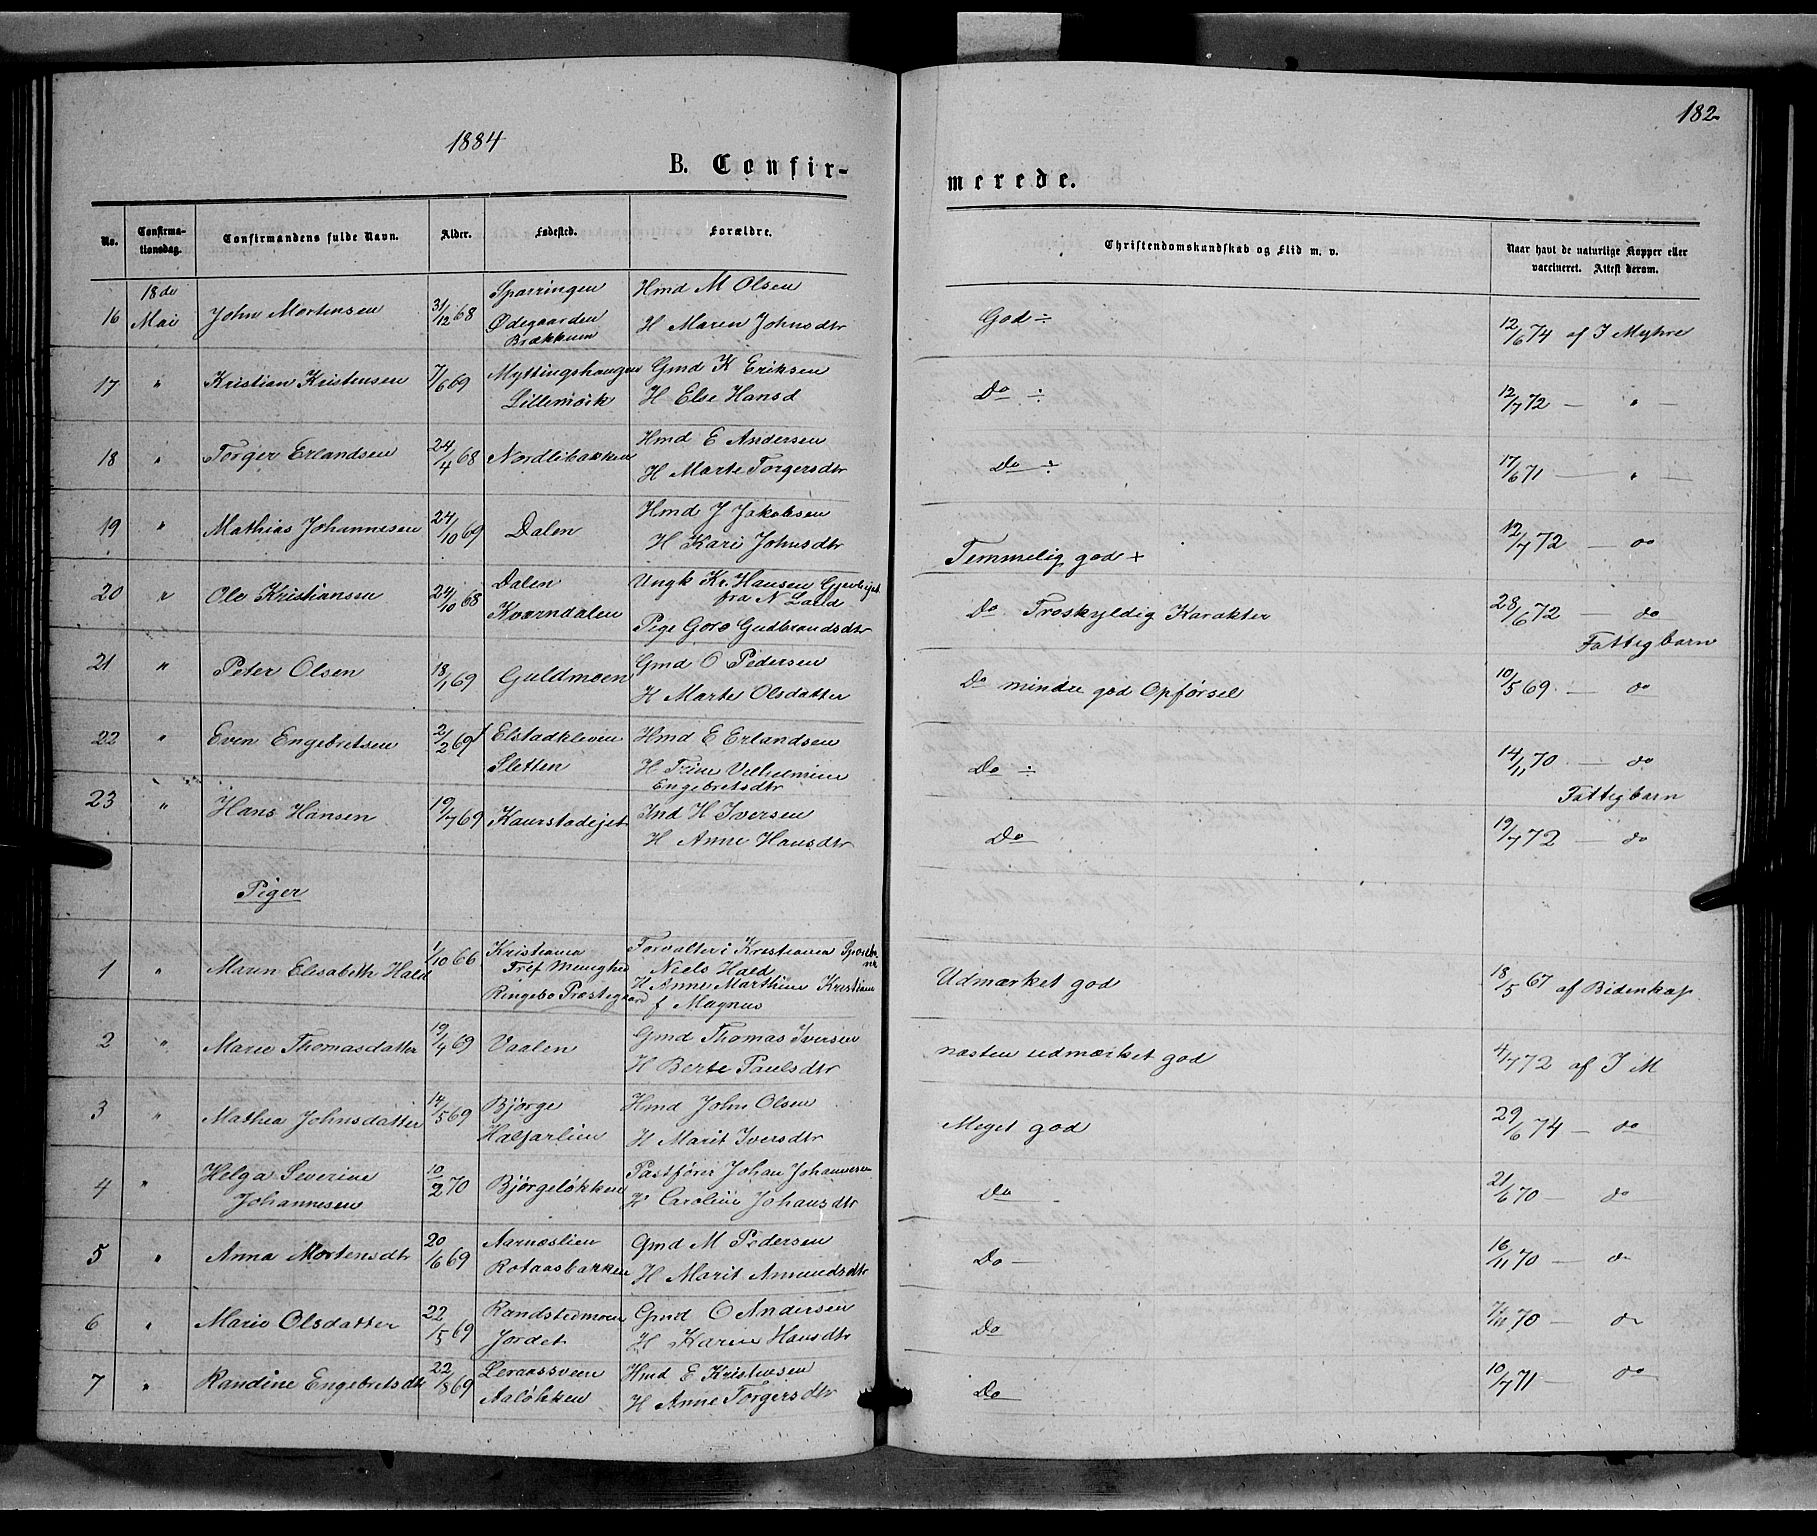 182
1884
B. Confir-
merede.
No.
Confirma-
tionsdag.
Confirmandens fulde Navn.
Alder.
Fødested.
Forældre.
Christendomskundskab og Flid m. v.
Naar havt de naturlige Kopper eller
vaccineret. Attest derom.
16 18de Mai John Mortensen 31/12 68 Sparringen Ødegaarden Brækkum Hmd M Olsen H Maren Johnsdtr God ÷ 12/6 74 af J Myhre
17 " Kristian Kristensen 7/6 69 Myttingshaugen Lillemoik Gmd K Eriksen H Else Hansd Do ÷ 12/7 72 — " —
18 " Torger Erlandsen 24/4 68 Nordlibakken Hmd E Andersen H Marte Torgersdtr Do ÷ 17/6 71 — " —
19 " Mathias Johannesen 24/10 69 Dalen Hmd J Jakobsen H Kari Johnsdtr Temmelig god + 12/7 72 — do
20 " Ole Kristiansen 24/10 68 Dalen Kværndalen Ungk Kr. Hansen fra N Land Pige Goro Gudbrandsdtr Do Troskyldig Karakter 28/6 72 — do
Fattigbarn
21 " Peter Olsen 18/1 69 Guldmoen Gmd O Pedersen H Marte Olsdatter Do mindre god Opførsel 10/5 69 — do
22 " Even Engebretsen 2/2 69 Elstadkleven Sletten Hmd E Erlandsen H Trine Vilhelmine Engebretsdtr Do ÷ 14/11 70 — do
Fattigbarn
23 " Hans Hansen 19/7 69 Kaurstadejet Ind H Iversen H Anne Hansdtr Do 19/7 72 — do
Piger
1 " Maren Elisabeth Hald 1/10 66 Kristiania Tref Menighed Ringebo Præstegaard Forvalter i Kristiania Niels Hald H Anne Marthine Kristiane f Magnus Udmærket god 18/5 67 af Bidenkap
2 " Marie Thomasdatter 19/4 69 Vaalen Gmd Thomas Iversen H Berte Paulsdtr næsten udmærket god 4/7 72 af J M
3 " Mathea Johnsdatter 14/5 69 Bjørge Halfarlien Hmd John Olsen H Marit Iversdtr Meget god 29/6 74 — do
4 " Helga Severine Johannesen 10/2 70 Bjørgeløkken Postfører Johan Johannesen H Caroline Johansdtr Do — 21/6 70 — do
5 " Anna Mortensdtr 20/6 69 Aarnæslien Rotaasbakken Gmd M Pedersen H Marit Amundsdtr Do — 16/11 70 — do
6 " Marie Olsdatter 22/5 69 Randstedmoen Jordet Gmd O Andersen H Karen Hansdtr Do 7/11 70 — do
7 " Randine Engebretsdtr 22/8 69 Leraassveen Aaløkken Hmd E Kristensen H Anne Torgersdtr Do 10/7 71 — do